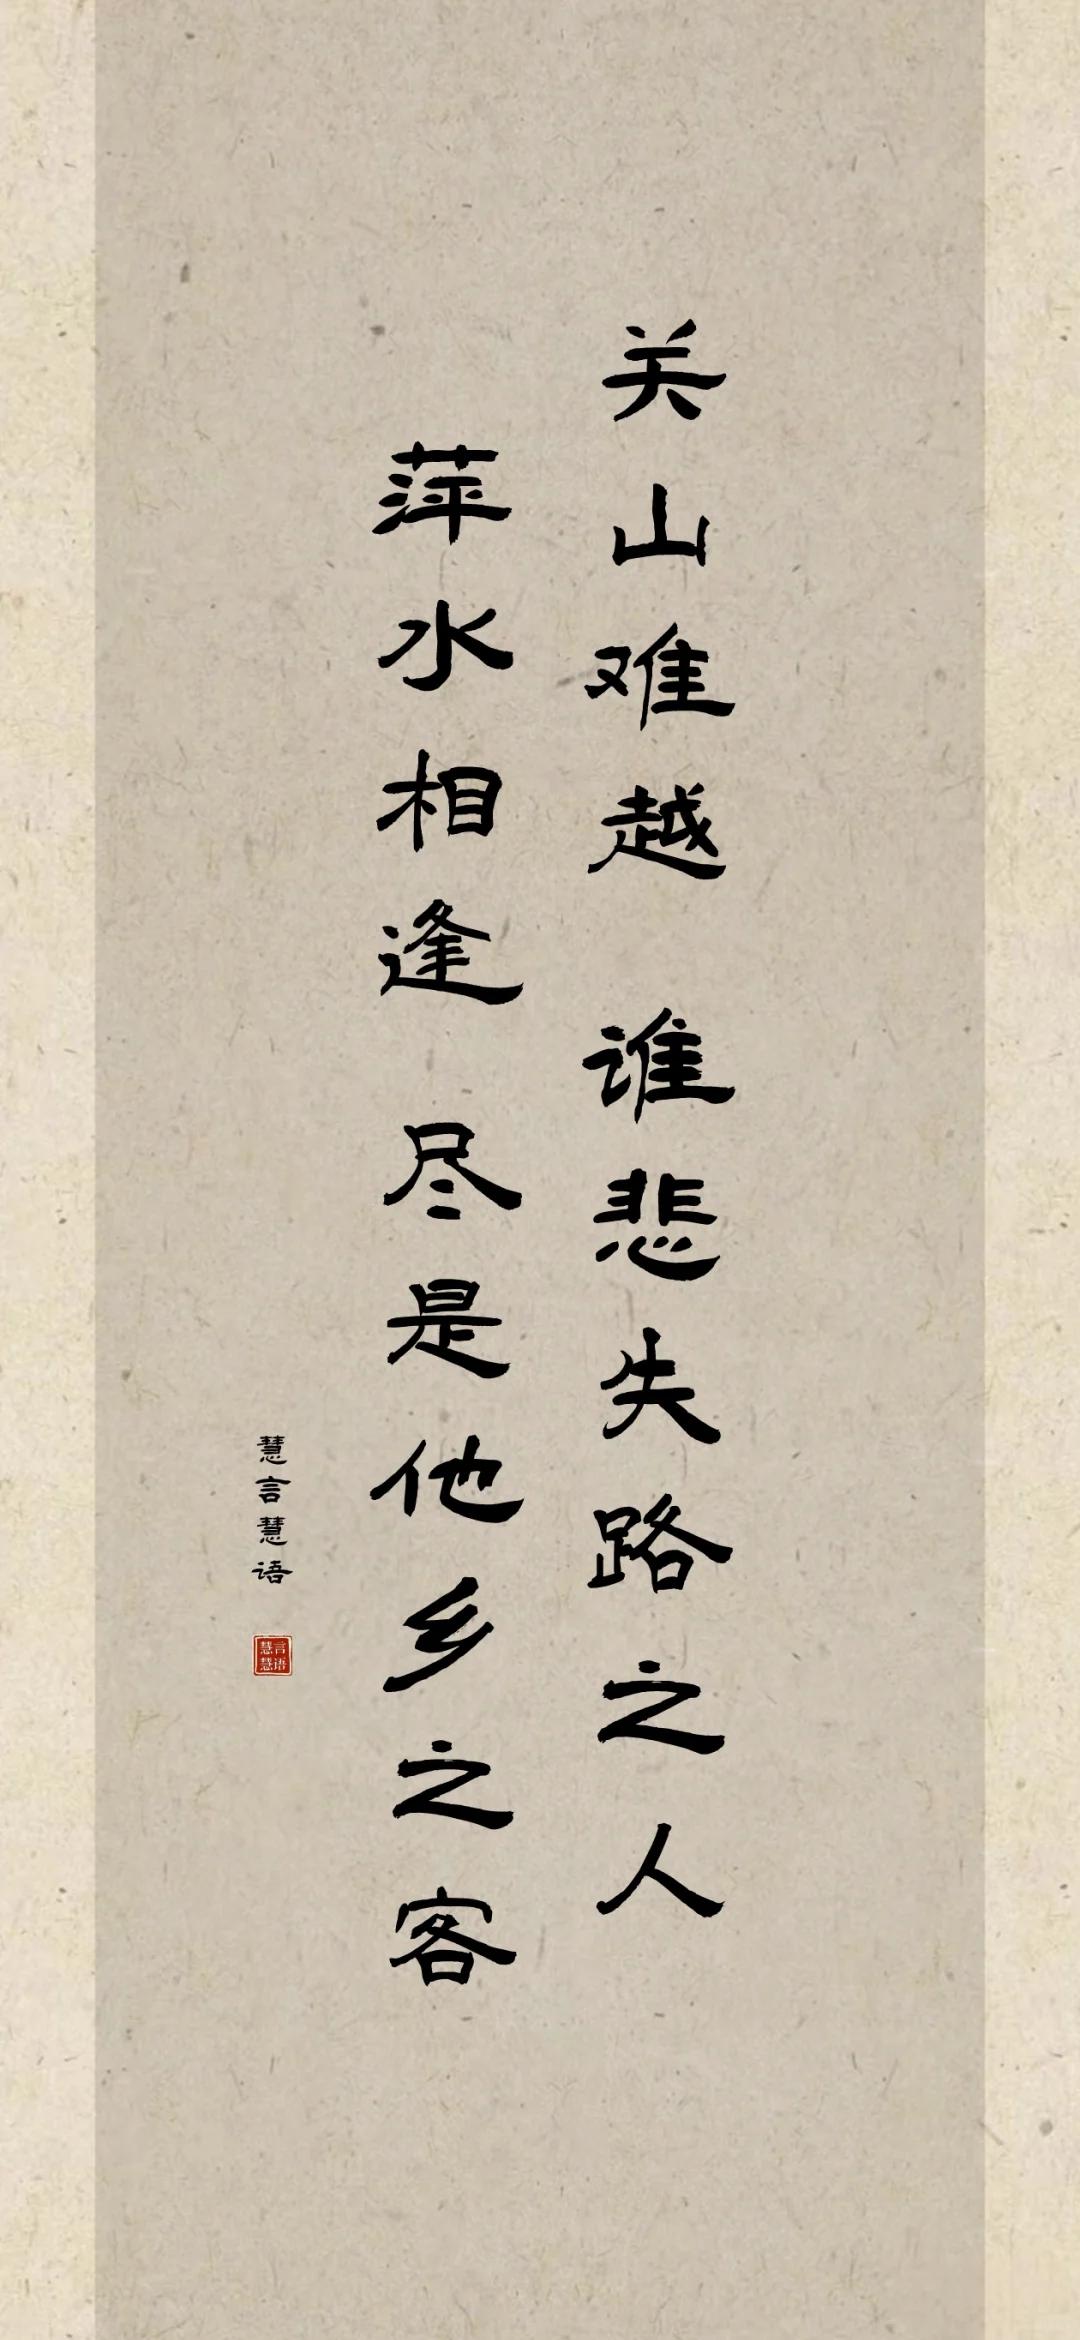 关山难越 谁悲失路之人
萍水相逢 尽是他乡之客
慧言慧语
言语
慧慧